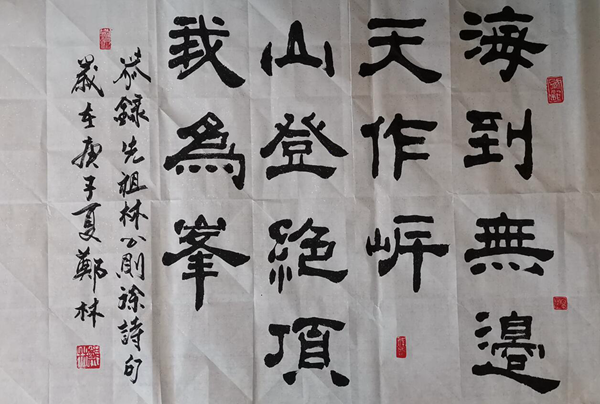 海到無邊
天作岸
山登絕頂
我為峯
恭錄先祖林公則徐詩句
歲在庚子夏鄭林